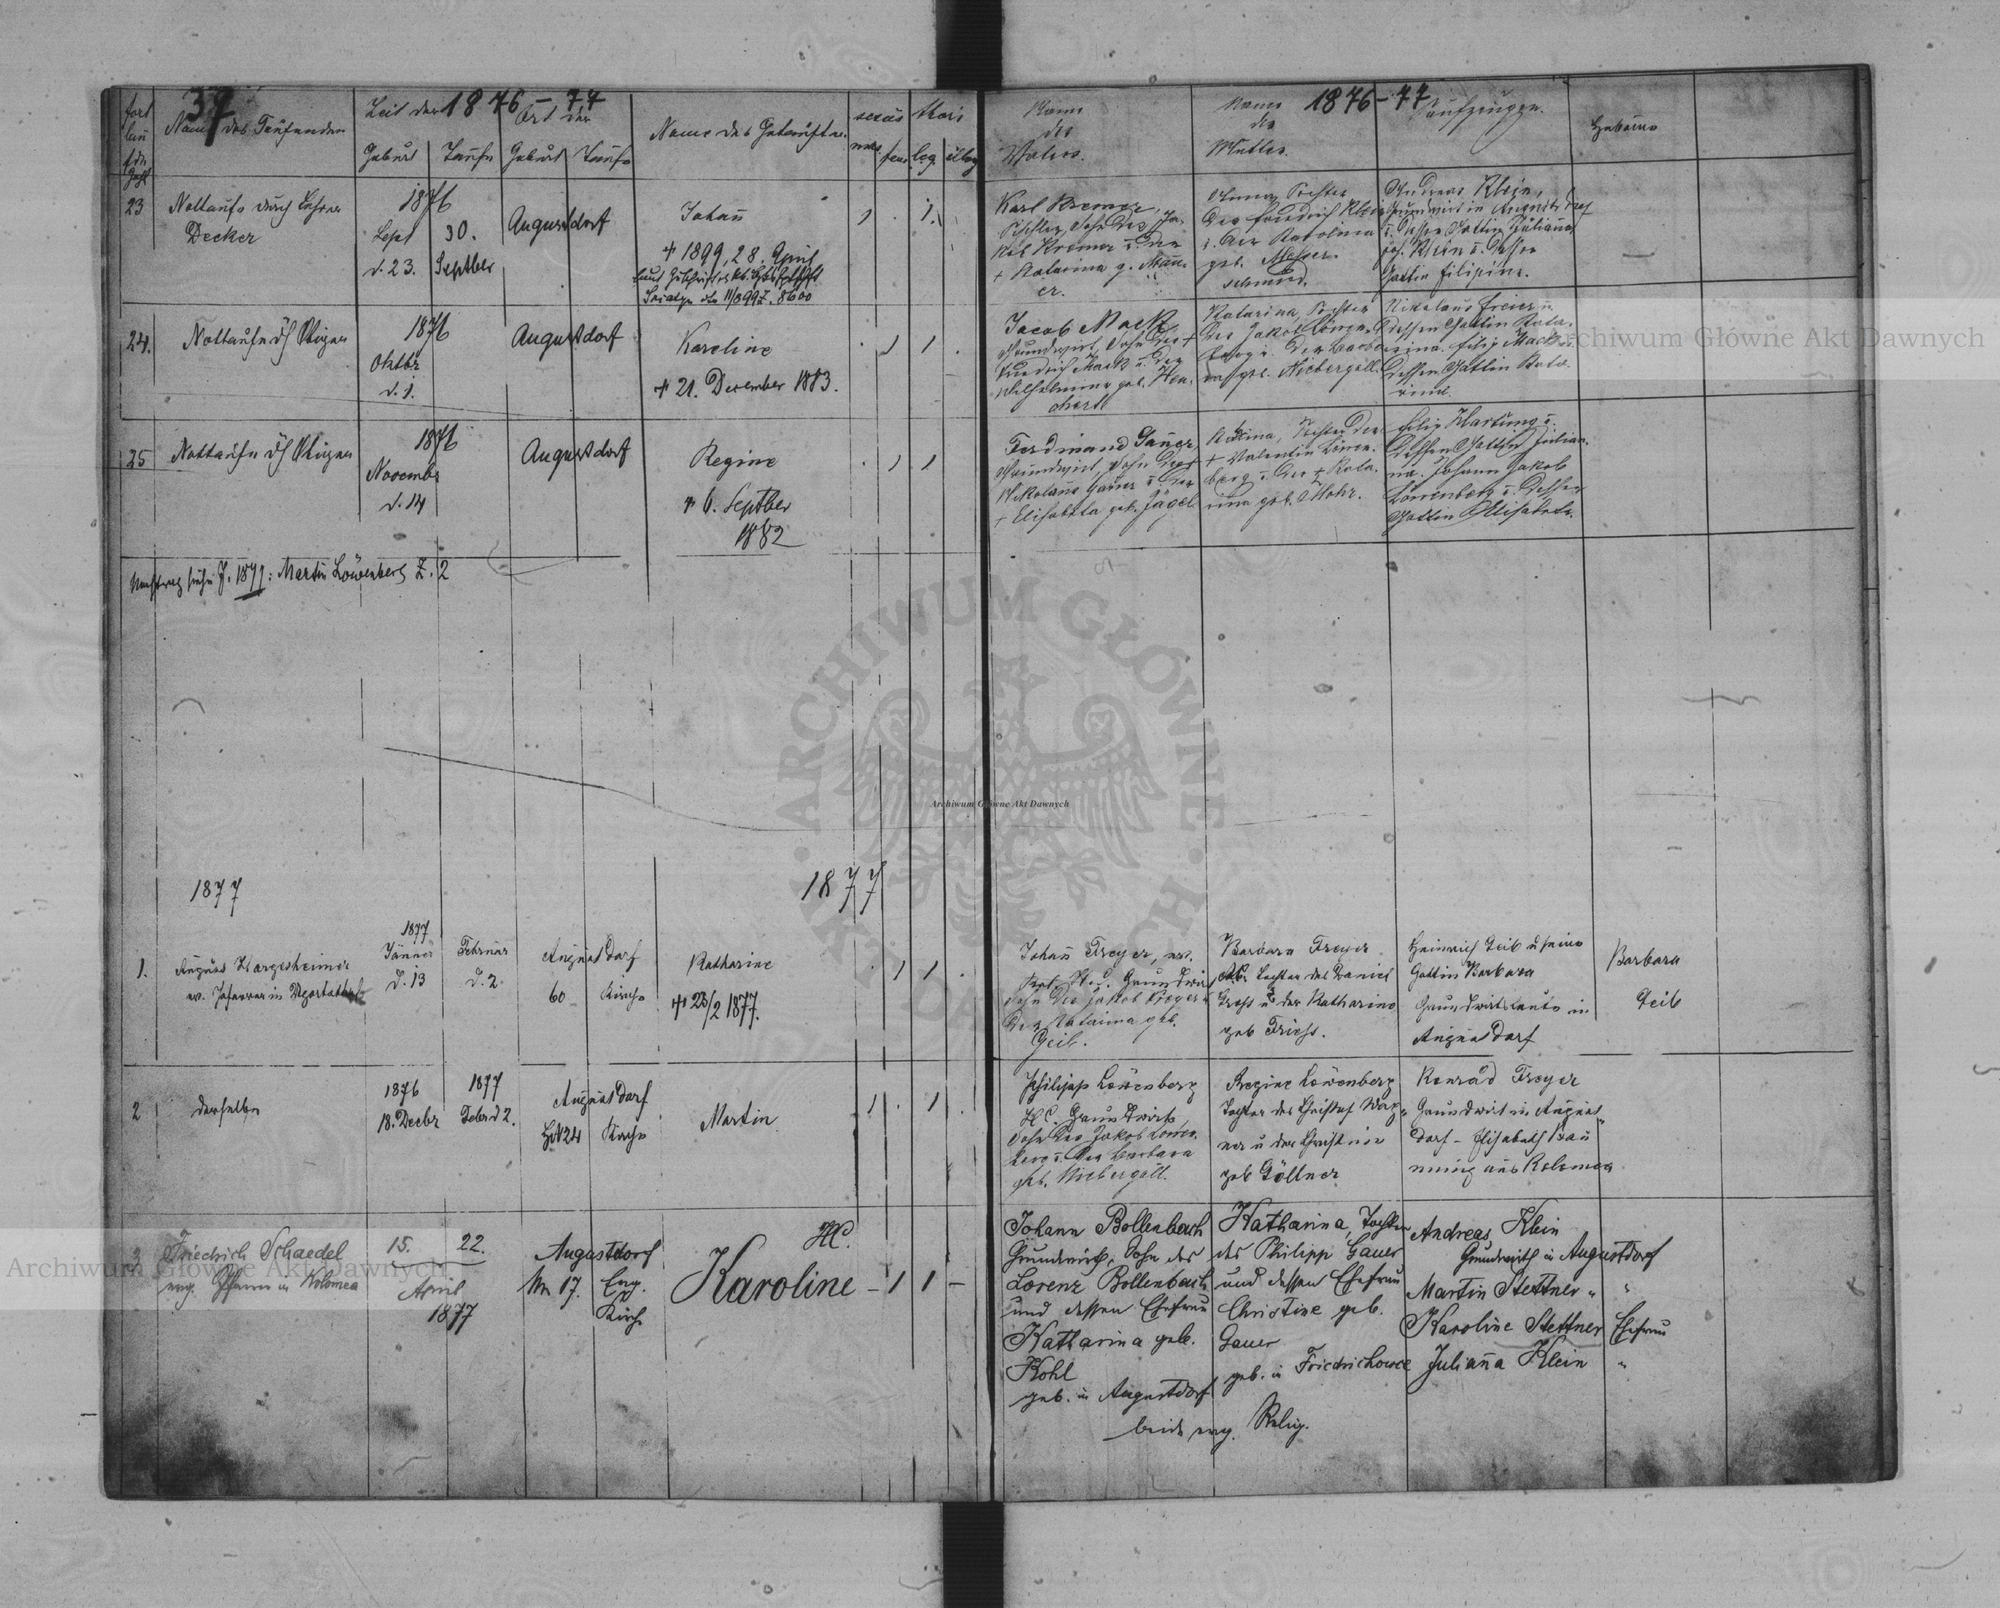 37
1876-77
1876-77
fort
lau
fde
Zahl
Name des Taufenden
Zeit der
Ort der
Geburt
Taufe
Geburt
Taufe
Name des Getauften
sexus
mas
fem
thori
leg.
illeg
Name
des
Vaters.
Name
der
Mutter.
Taufzeugen.
Hebame
23
Nottaufe durch Lehrer
Decker
1876
Sept
d. 23.
30.
Septber
Augustdorf
Johañ
+ 1899, 28. April
1
1.
Karl Kremer,
Tischler, Sohn des Ja-
kob Kremer u. der
+ Katarina g. Mañ-
er.
Tochter
des Friedrich Klein
geb. Messer-
schmid.
Andreas Klein,
Grundwirt in Augustdorf
u. dessen Gattin Juliana
Jos. Klein u. dessen
Gattin Filipine.
24.
Nottaufe dch Wiegen
1876
Oktbr
d. 1.
Augustdorf
Karoline
+ 21. December 1883.
1
1
Jacob Mack
Grundwirt, Sohn des +
Friedrich Mack u. der
Wilhelmine geb. Hen-
Katarina, Tochter
des Jakob Löwen-
berg u. der Barba-
ra geb. Niebergall.
Nikolaus Freier u.
dessen Gattin Kata-
rina. Filip Mack u.
dessen Gattin Kata-
rina.
25
Nottaufe dch Wiegen
1876
Novembr
d. 14
Augustdorf
Regine
+ 6. Septber
1882
1
1
Ferdinand Gauer,
Grundwirt, Sohn des +
Nikolaus Gauer u. der
+ Elisabeta geb. Jägel
Tochter des
+ Valentin Löwen-
berg u. der + Kata-
rina geb. Mohr.
Filip Hartung u.
dessen Gattin Julian-
na. Johann Jakob
Löwenberg u. dessen
Gattin Elisabeta.
Nachtrag siehe J. 1877: Martin Löwenberg Z. 2
1877
1877
1.
August Hargesheimer
ev. Pfarrer in Ugartsthal
1877
Jänner
d. 13
Februar
d. 2.
Augustdorf
60
Kirche
Katharine
+ 23/2 1877.
1
1
Johañ Freyer, ev.
H.C. Grundwirt
Sohn des Jakob Freyer u
der Katarina geb.
Geib.
Barbara Freyer
Tochter des Daniel
Gross u der Katharina
geb Friess.
Heinrich Geib u seine
Gattin Barbara
Grundwirtsleute in
Augustdorf
Barbara
Geib
2
derselbe
1876
18. Decbr
1877
Febr. d 2.
Augustdorf
HN 24
Kirche
Martin
1
1
Philipp Löwenberg
H.C. Grundwirth,
Sohn des Jakob Löwen-
berg u. der Barbara
geb. Niebergall.
Regine Löwenberg
Tochter des Christof Wag-
ner u der Christine
geb Göllner
Konrad Freyer
Grundwirt in August-
dorf - Elisabeth Brau
nning aus Kolomea
3
Friedrich Schaedel
evg. Pfarrer in Kolomea
15.
22.
April
1877
Augustdorf
Nr 17.
Evg.
Kirche
HC.
Karoline
- 1
1
-
Johann Bollenbach
Grundwirth, Sohn des
Lorenz Bollenbach
und dessen Ehefrau
Katharina geb.
Kohl
geb. in Augustdorf
Katharina, Tochter
des Philipp Gauer
und dessen Ehefrau
Christine geb.
Gauer
geb. in Friedrichowce
beide evg. Relig.
Andreas Klein
Grundwirth in Augustdorf
Martin Stettner " "
Karoline Stettner Ehefrau
Julianna Klein "
Archiwum Główne Akt Dawnych
Archiwum Główne Akt Dawnych
Archiwum Główne Akt Dawnych